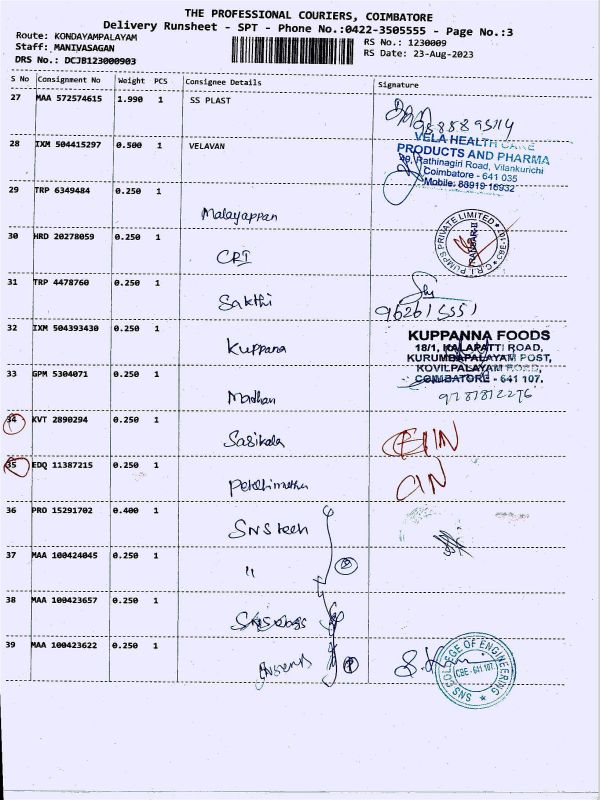 THE PROFESSIONAL COURIERS, COIMBATORE
Delivery Runsheet - SPT - Phone No.:0422-3505555 - Page No.:3
Route: KONDAYAMPALAYAM
Staff: MANIVASAGAN
DRS No.: DCJB123000903
RS No.: 1230009
RS Date: 23-Aug-2023
S No Consignment No Weight PCS Consignee Details Signature
27 MAA 572574615 1.990 1 SS PLAST
28 IXM 504415297 0.500 1 VELAVAN
VELA HEALTH CARE
PRODUCTS AND PHARMA
Rathinagiri Road, Vilankurichi
Coimbatore - 641 035
Mobile: 88919 16932
29 TRP 6349484 0.250 1
Malayappan
30 HRD 20278059 0.250 1
CRI
C.R.I. PUMPS PRIVATE LIMITED
31 TRP 4478760 0.250 1
Sakthi
32 IXM 504393430 0.250 1
Kuppana
KUPPANNA FOODS
18/1, KALAPATTI ROAD,
KURUMBAPALAYAM POST,
KOVILPALAYAM ROAD,
COIMBATORE - 641 107.
33 GPM 5304071 0.250 1
Madhan
9787812276
34 KVT 2890294 0.250 1
Sasikala
35 EDQ 11387215 0.250 1
36 PRO 15291702 0.400 1
SNS tech
37 MAA 100424045 0.250 1
"
38 MAA 100423657 0.250 1
39 MAA 100423622 0.250 1
SNS COLLEGE OF ENGINEERING
CBE - 641 107.